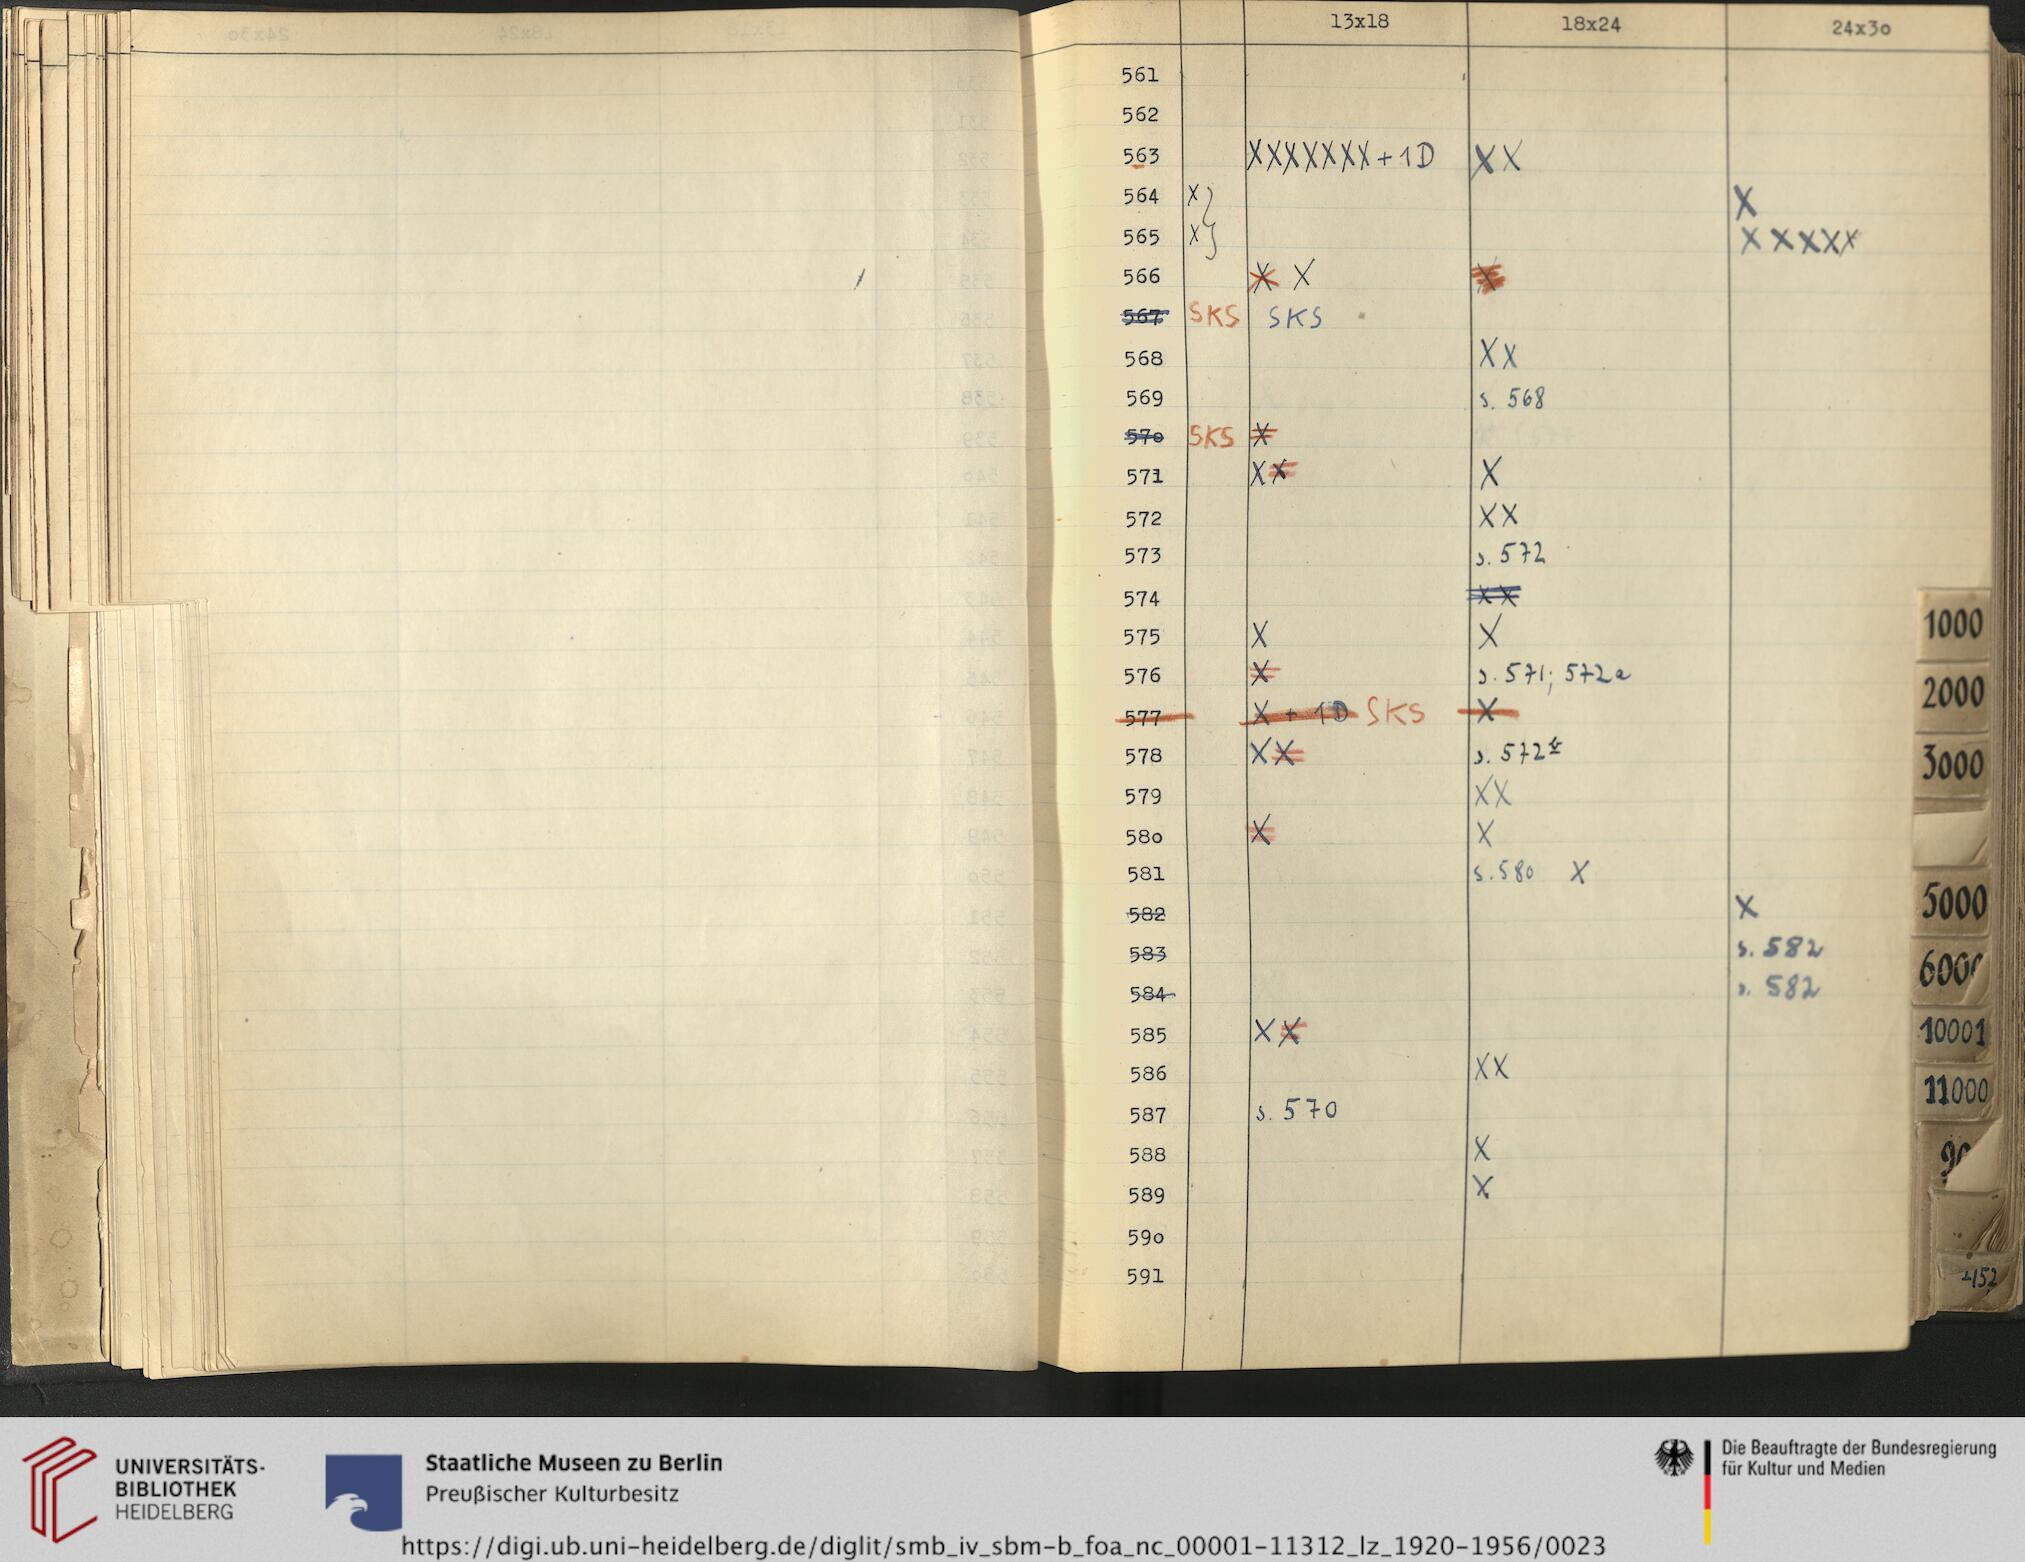 13x18 18x24 24x3o
561
562
563 XXXXXXX + 1D XX
564 X X
565 X X X X X X
566 X X X
567 SKS SKS
568 XX
569 s. 568
57o SKS X
571 XX X
572 XX
573 s. 572
574 XX
575 X X
576 X s. 571; 572a
577 X + 1D SKS X
578 XX s. 572
579 XX
58o X X
581 s. 580 X
582 X
583 s. 582
584 s. 582
585 XX
586 XX
587 s. 570
588 X
589 X
59o
591
1000
2000
3000
5000
6000
10001
11000
UNIVERSITÄTS-
BIBLIOTHEK
HEIDELBERG
Staatliche Museen zu Berlin
Preußischer Kulturbesitz
Die Beauftragte der Bundesregierung
für Kultur und Medien
https://digi.ub.uni-heidelberg.de/diglit/smb_iv_sbm-b_foa_nc_00001-11312_lz_1920-1956/0023